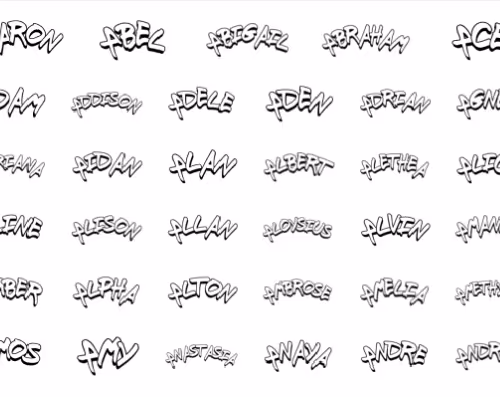 ARON ABEL ABIGAIL ABRAHAM ACE
DAM ADDISON ADELE ADEN ADRIAN AGN
RIANA AIDAN ALAN ALBERT ALETHEA ALIC
LINE ALISON ALLAN ALOYSIUS ALVIN AMAN
MBER ALPHA ALTON AMBROSE AMELIA AMETHY
MOS AMY ANASTASIA ANAYA ANDRE ANDR